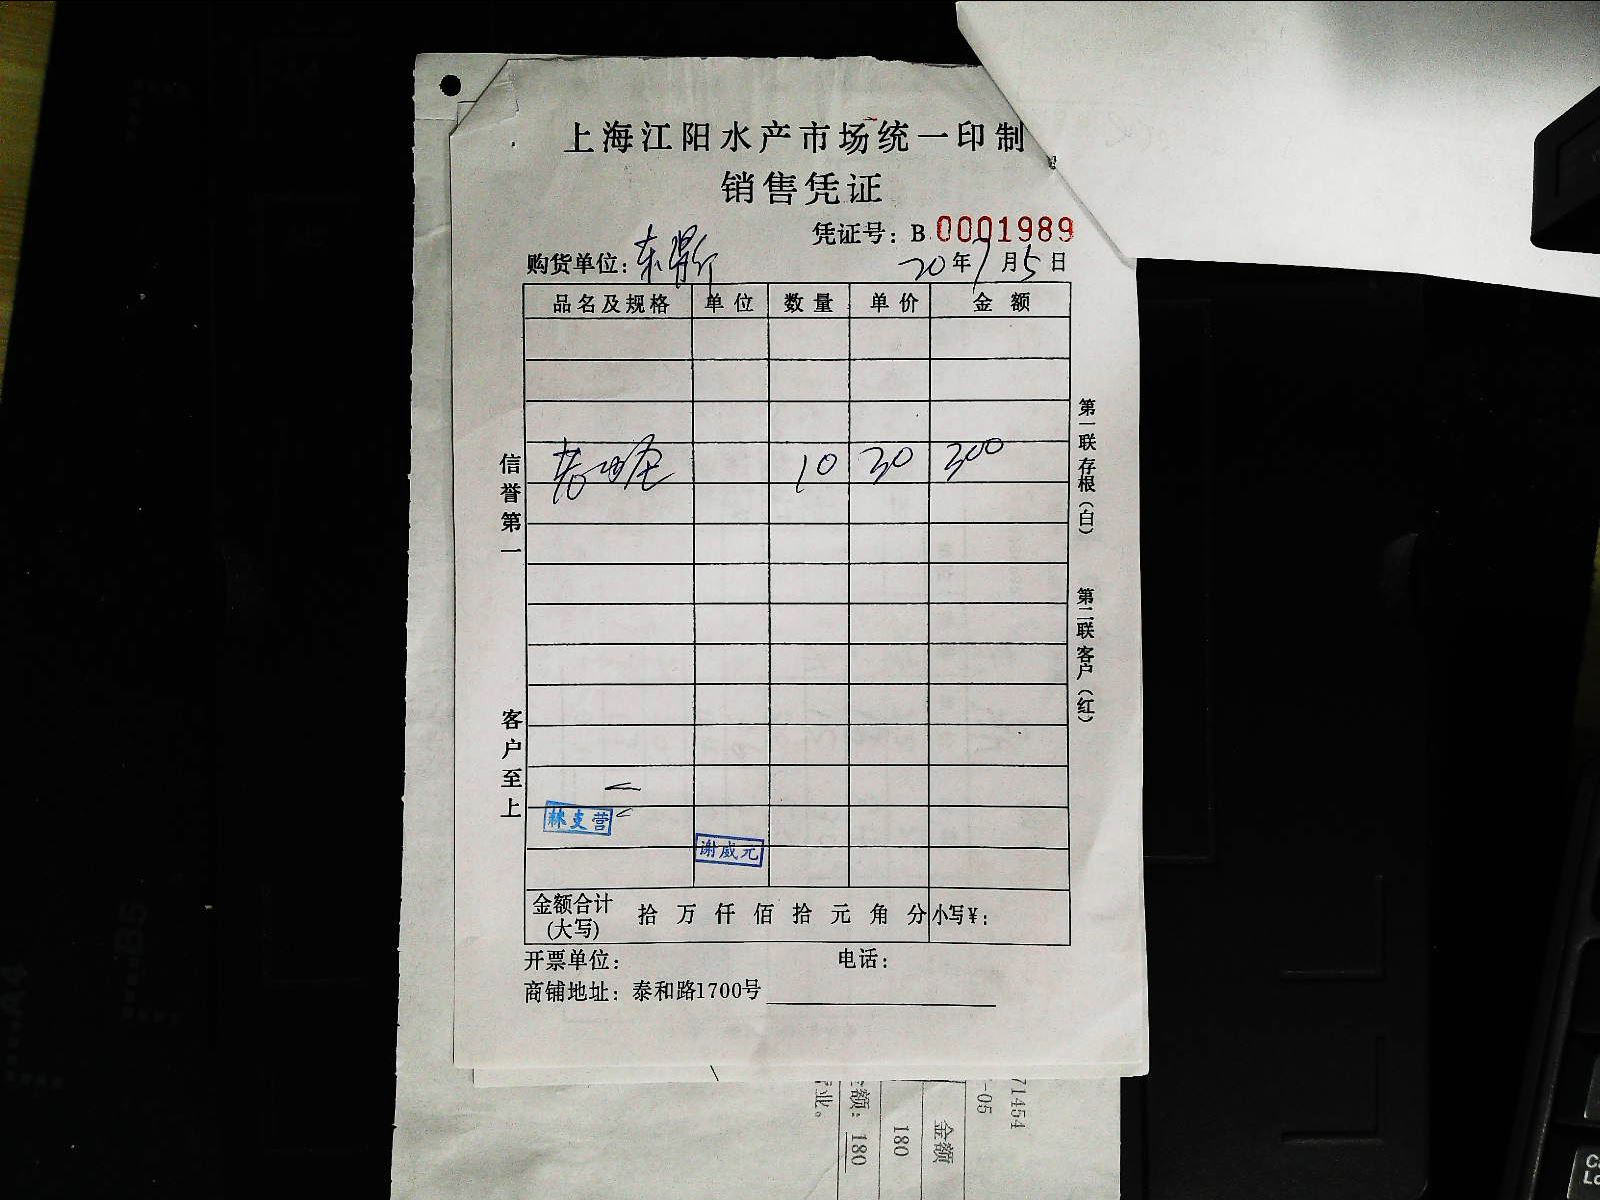 上海江阳水产市场统一印制
销售凭证
凭证号：B 0001989
购货单位：东
20年7月5日
品名及规格 单位 数量 单价 金额
10 30 300
林支营
谢威元
金额合计(大写) 拾万仟佰拾元角分 小写¥：
开票单位： 电话：
商铺地址：泰和路1700号
信誉第一
客户至上
第一联存根（白）
第二联客户（红）
71454
-05
金额
180
额：180
业。